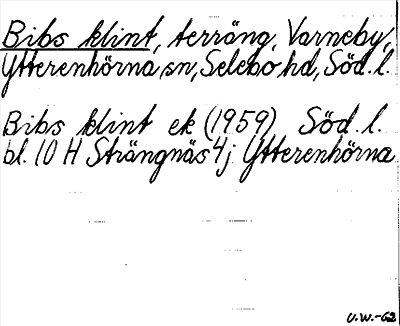 Bibs klint, terräng, Varneby,
Ytterenhörna sn, Selebo hd, Söd. l.
Bibs klint ek (1959) Söd. l.
bl. 10 H Strängnäs 4j Ytterenhörna
U.W.-62